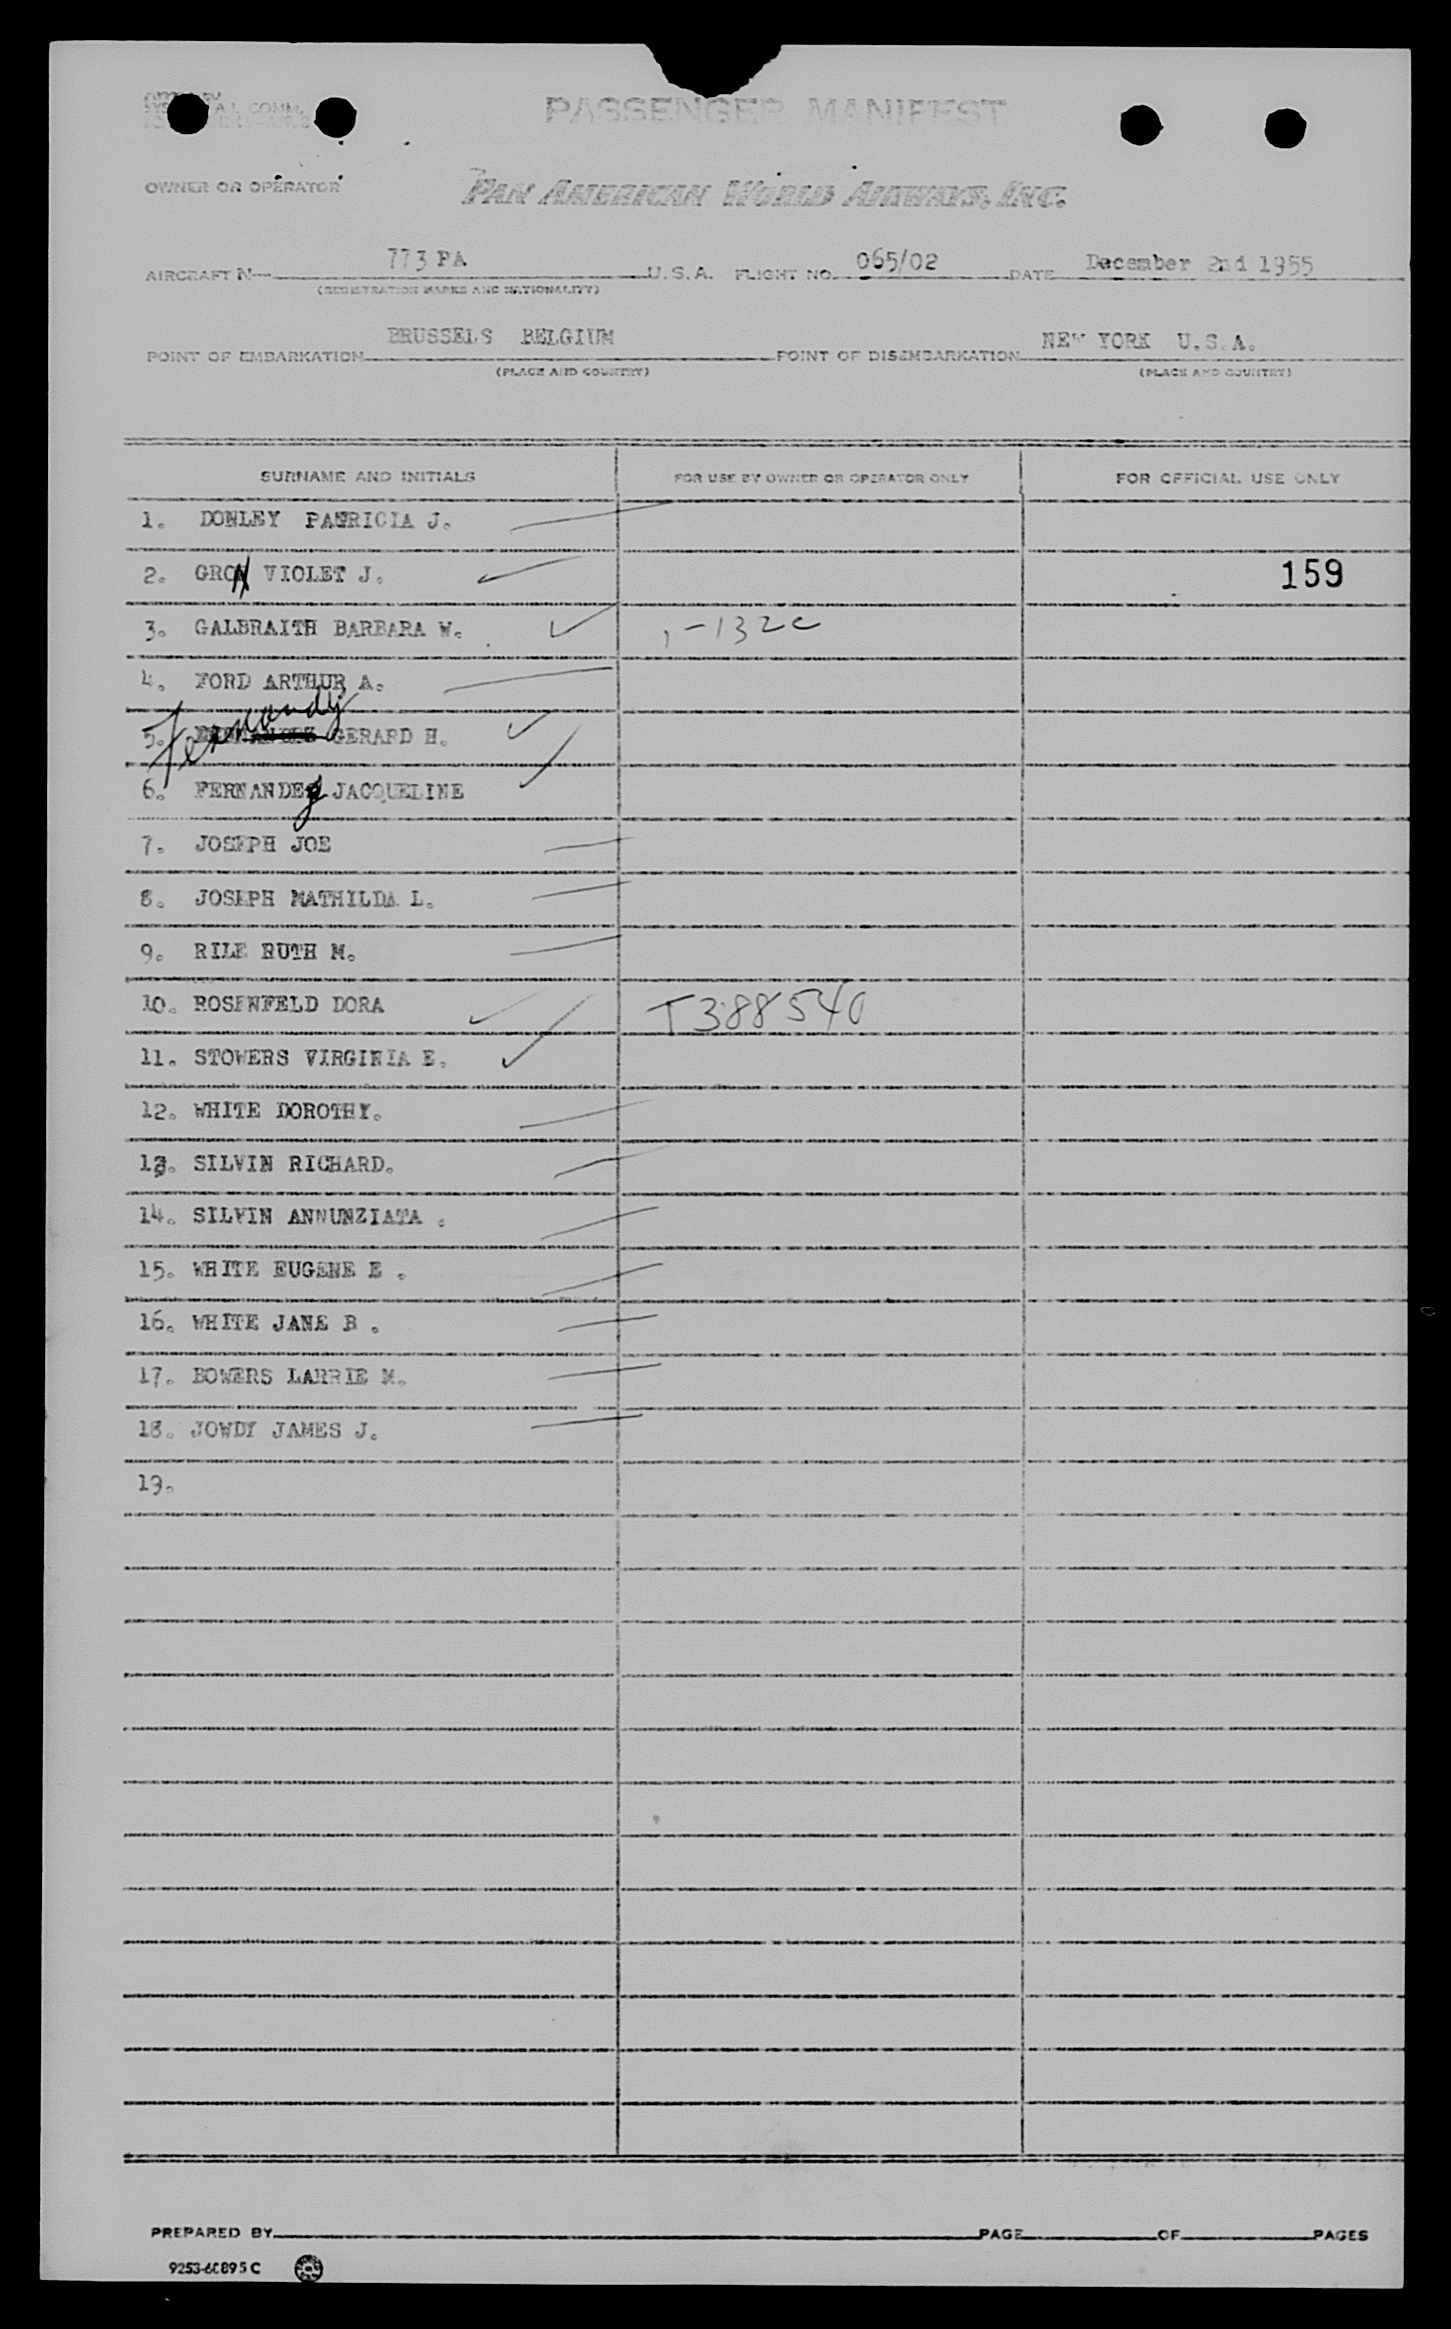 PASSENGER MANIFEST
OWNER OR OPERATOR PAN AMERICAN WORLD AIRWAYS, INC.
AIRCRAFT N— 773 PA U.S.A. FLIGHT NO. 065/02 DATE December 2nd 1955
(REGISTRATION MARKS AND NATIONALITY)
POINT OF EMBARKATION BRUSSELS BELGIUM POINT OF DISEMBARKATION NEW YORK U.S.A.
(PLACE AND COUNTRY) (PLACE AND COUNTRY)
SURNAME AND INITIALS FOR USE BY OWNER OR OPERATOR ONLY FOR OFFICIAL USE ONLY
1. DONLEY PATRICIA J.
2. GRON VIOLET J. 159
3. GALBRAITH BARBARA W. 1-132c
4. FORD ARTHUR A.
5. Fernandy GERARD H.
6. FERNANDEy JACQUELINE
7. JOSEPH JOE
8. JOSEPH MATHILDA L.
9. RILE RUTH M.
10. ROSENFELD DORA T388540
11. STOWERS VIRGINIA E.
12. WHITE DOROTHY.
13. SILVIN RICHARD.
14. SILVIN ANNUNZIATA .
15. WHITE EUGENE E .
16. WHITE JANE B .
17. BOWERS LARRIE M.
18. JOWDY JAMES J.
19.
PREPARED BY PAGE OF PAGES
9253-60895C